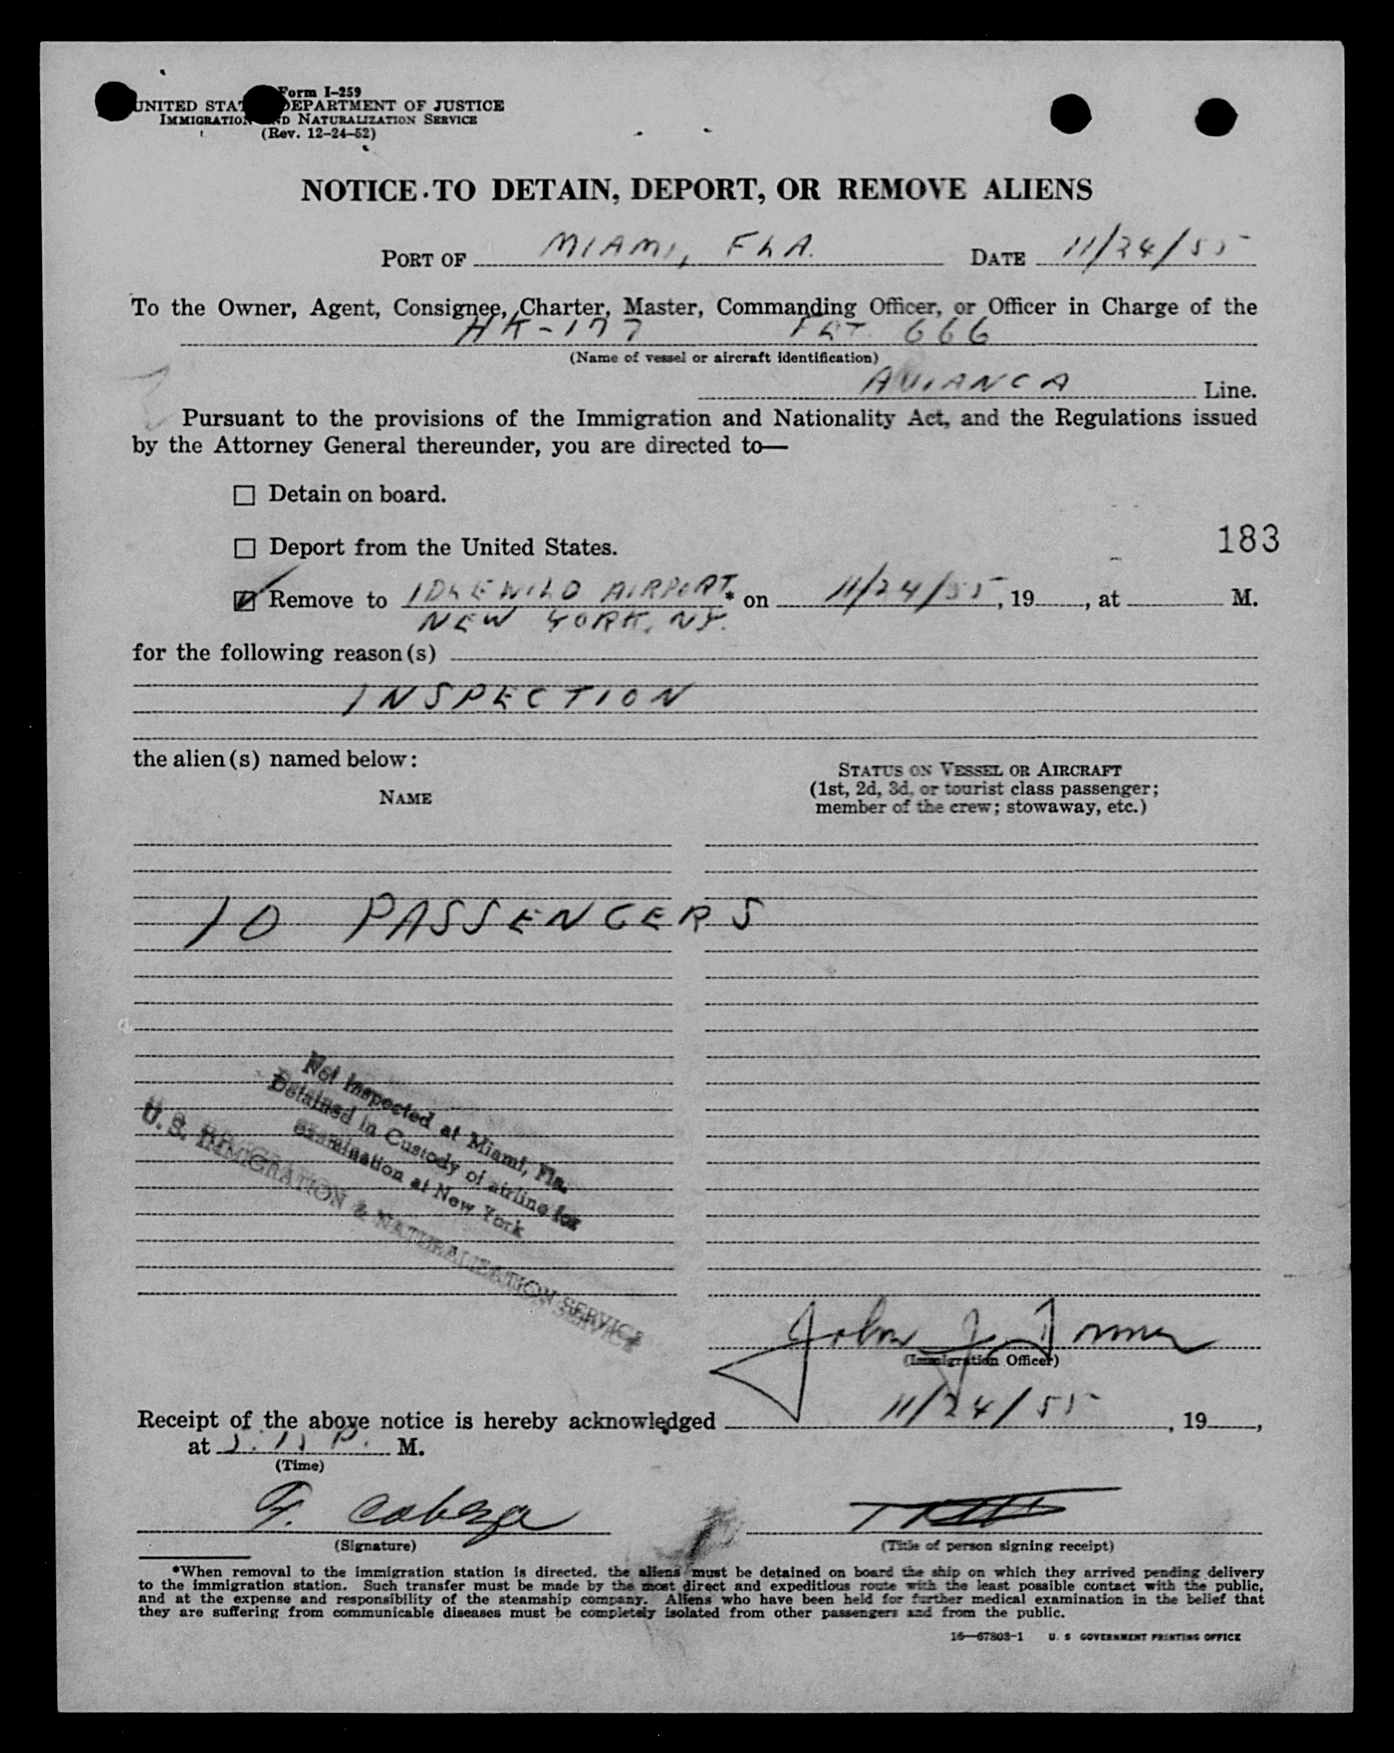 Form I-259
UNITED STATES DEPARTMENT OF JUSTICE
IMMIGRATION AND NATURALIZATION SERVICE
(Rev. 12-24-52)
NOTICE TO DETAIN, DEPORT, OR REMOVE ALIENS
PORT OF MIAMI, FLA. DATE 11/24/55
To the Owner, Agent, Consignee, Charter, Master, Commanding Officer, or Officer in Charge of the
HK-177 FLT 666
(Name of vessel or aircraft identification)
AVIANCA Line.
Pursuant to the provisions of the Immigration and Nationality Act, and the Regulations issued
by the Attorney General thereunder, you are directed to—
☐ Detain on board.
☐ Deport from the United States.
183
☑ Remove to IDLEWILD AIRPORT * on 11/24/55, 19......, at ............ M.
NEW YORK, NY.
for the following reason(s)
INSPECTION
the alien(s) named below:
NAME
STATUS ON VESSEL OR AIRCRAFT
(1st, 2d, 3d, or tourist class passenger;
member of the crew; stowaway, etc.)
10 PASSENGERS
Not Inspected at Miami, Fla.
Detained in Custody of airline for
examination at New York
U. S. IMMIGRATION & NATURALIZATION SERVICE
John J.
(Immigration Officer)
Receipt of the above notice is hereby acknowledged 11/24/55, 19......,
at P. M.
(Time)
(Signature)
(Title of person signing receipt)
*When removal to the immigration station is directed, the aliens must be detained on board the ship on which they arrived pending delivery
to the immigration station. Such transfer must be made by the most direct and expeditious route with the least possible contact with the public,
and at the expense and responsibility of the steamship company. Aliens who have been held for further medical examination in the belief that
they are suffering from communicable diseases must be completely isolated from other passengers and from the public.
16—67803-1 U. S GOVERNMENT PRINTING OFFICE